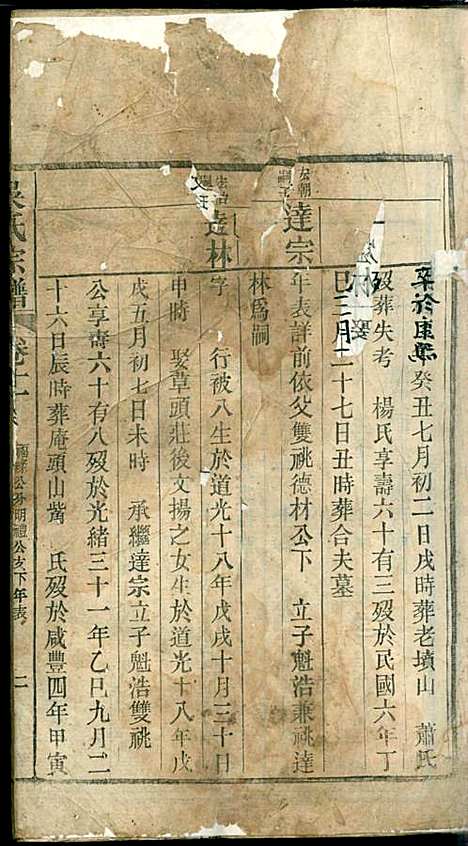 卒於康熙癸丑七月初二日戌時葬老墳山　蕭氏
歿葬失考　楊氏享壽六十有三歿於民國六年丁
巳三月二十七日丑時葬合夫墓
達宗
年表詳前依父雙祧德材公下　立子魁浩兼祧達
林為嗣
達林
字　行被八生於道光十八年戊戌十月三十日
申時　娶草頭莊後文揚之女生於道光十八年戊
戌五月初七日未時　承繼達宗立子魁浩雙祧
公享壽六十有八歿於光緒三十一年乙巳九月二
十六日辰時葬庵頭山觜　氏歿於咸豐四年甲寅
氏宗譜
卷十
公分明禮公亥下年表
二